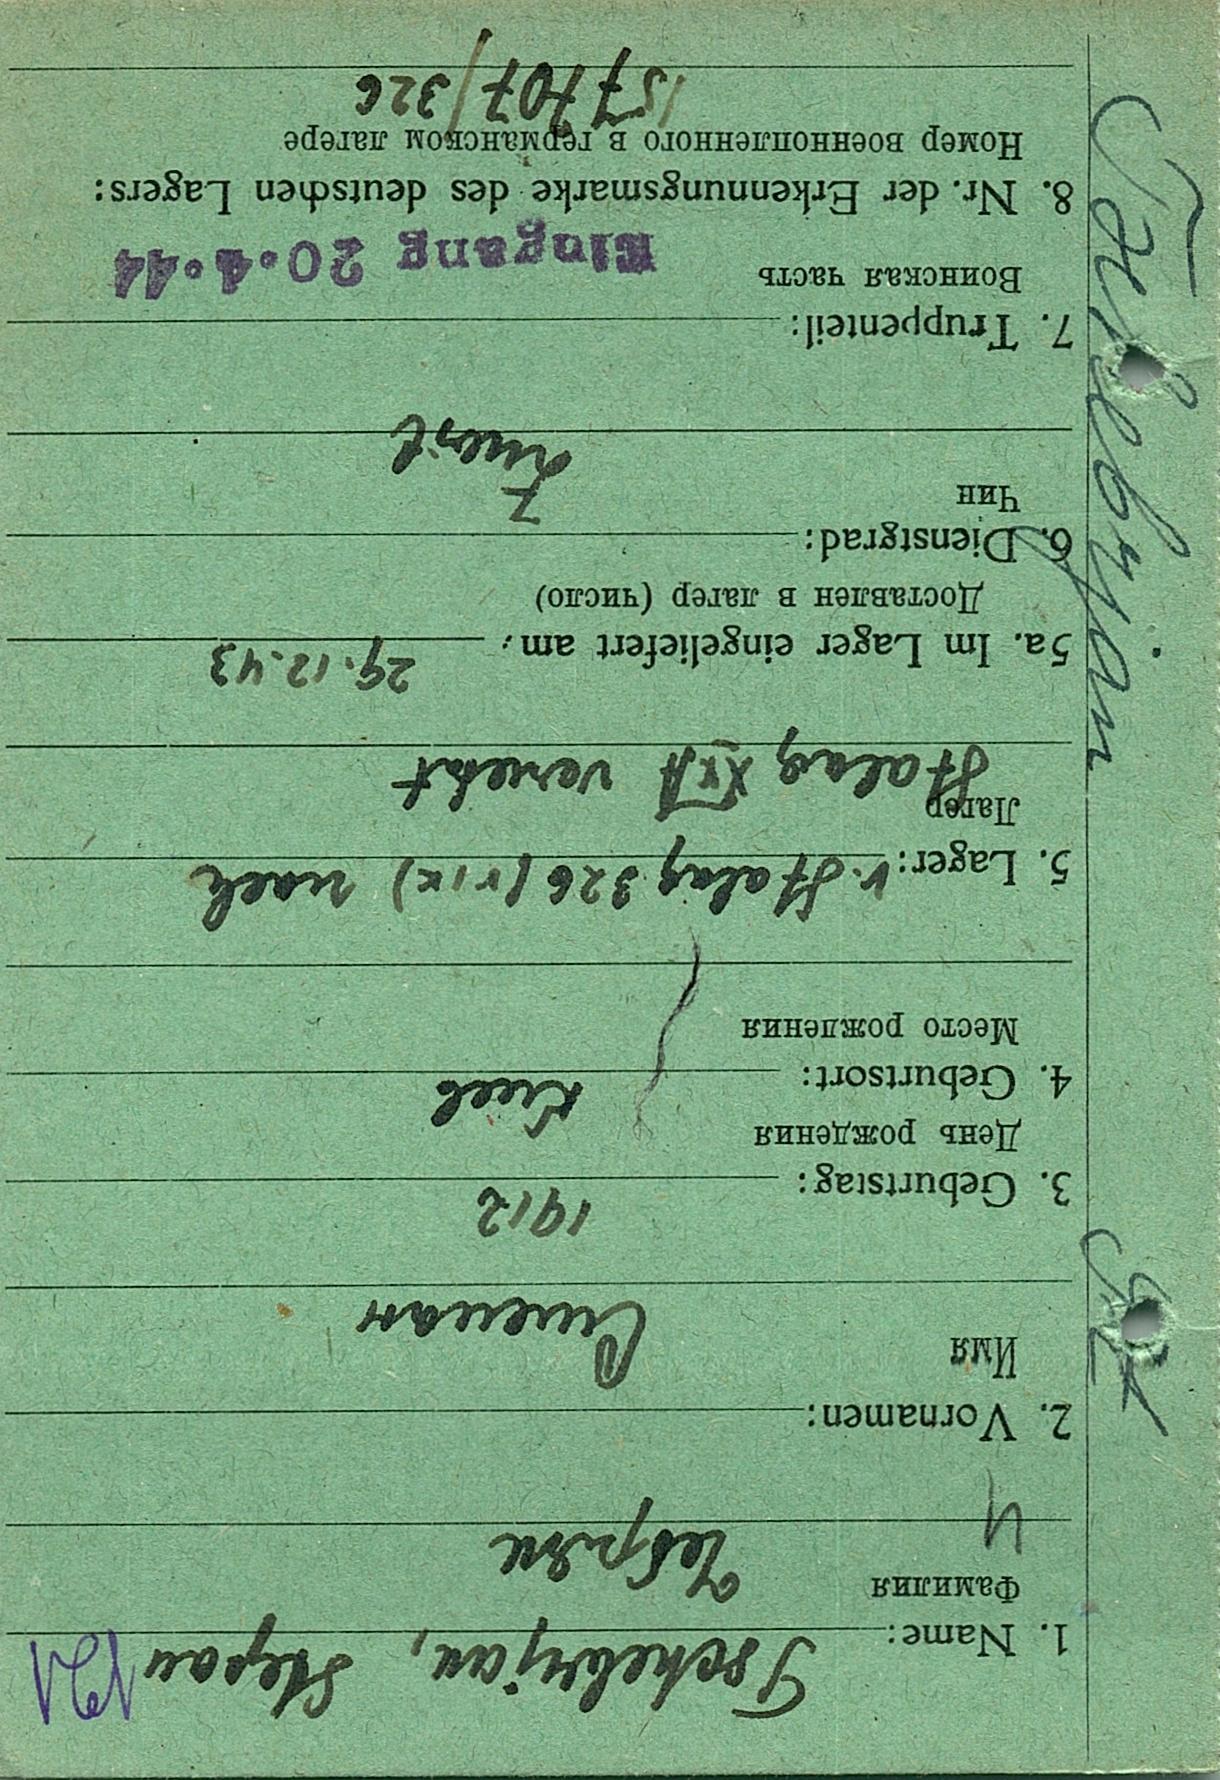 1. Name: Tschebrjan, Stepan
Фамилия
Чебрян
Ч
2. Vornamen:
Имя
Степан
3. Geburtstag: 1912
День рождения
4. Geburtsort: Киев
Место рождения
5. Lager: v. Stalag 326 (VIK) nach
Лагер
Stalag XXA versetzt
5a. Im Lager eingeliefert am: 29.12.43
Доставлен в лагер (число)
6. Dienstgrad:
Чин
7. Truppenteil:
Воинская часть
Eingang 20.4.44
8. Nr. der Erkennungsmarke des deutschen Lagers:
Номер военнопленного в германском лагере
157707/326